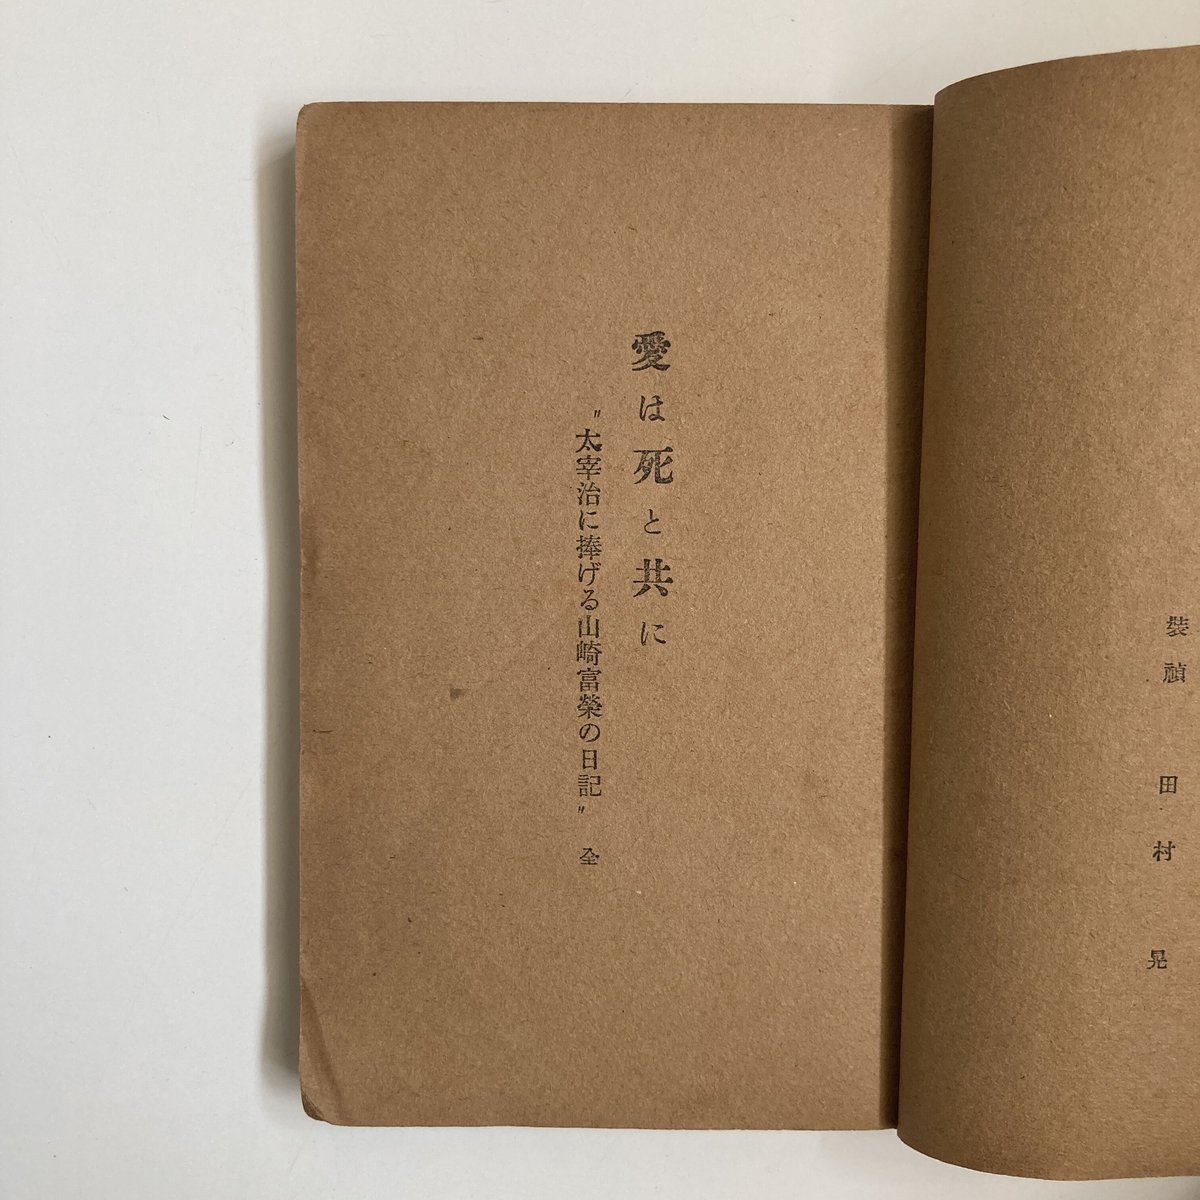 裝幀 田村晃
愛は死と共に
〝太宰治に捧げる山崎富榮の日記〟 全